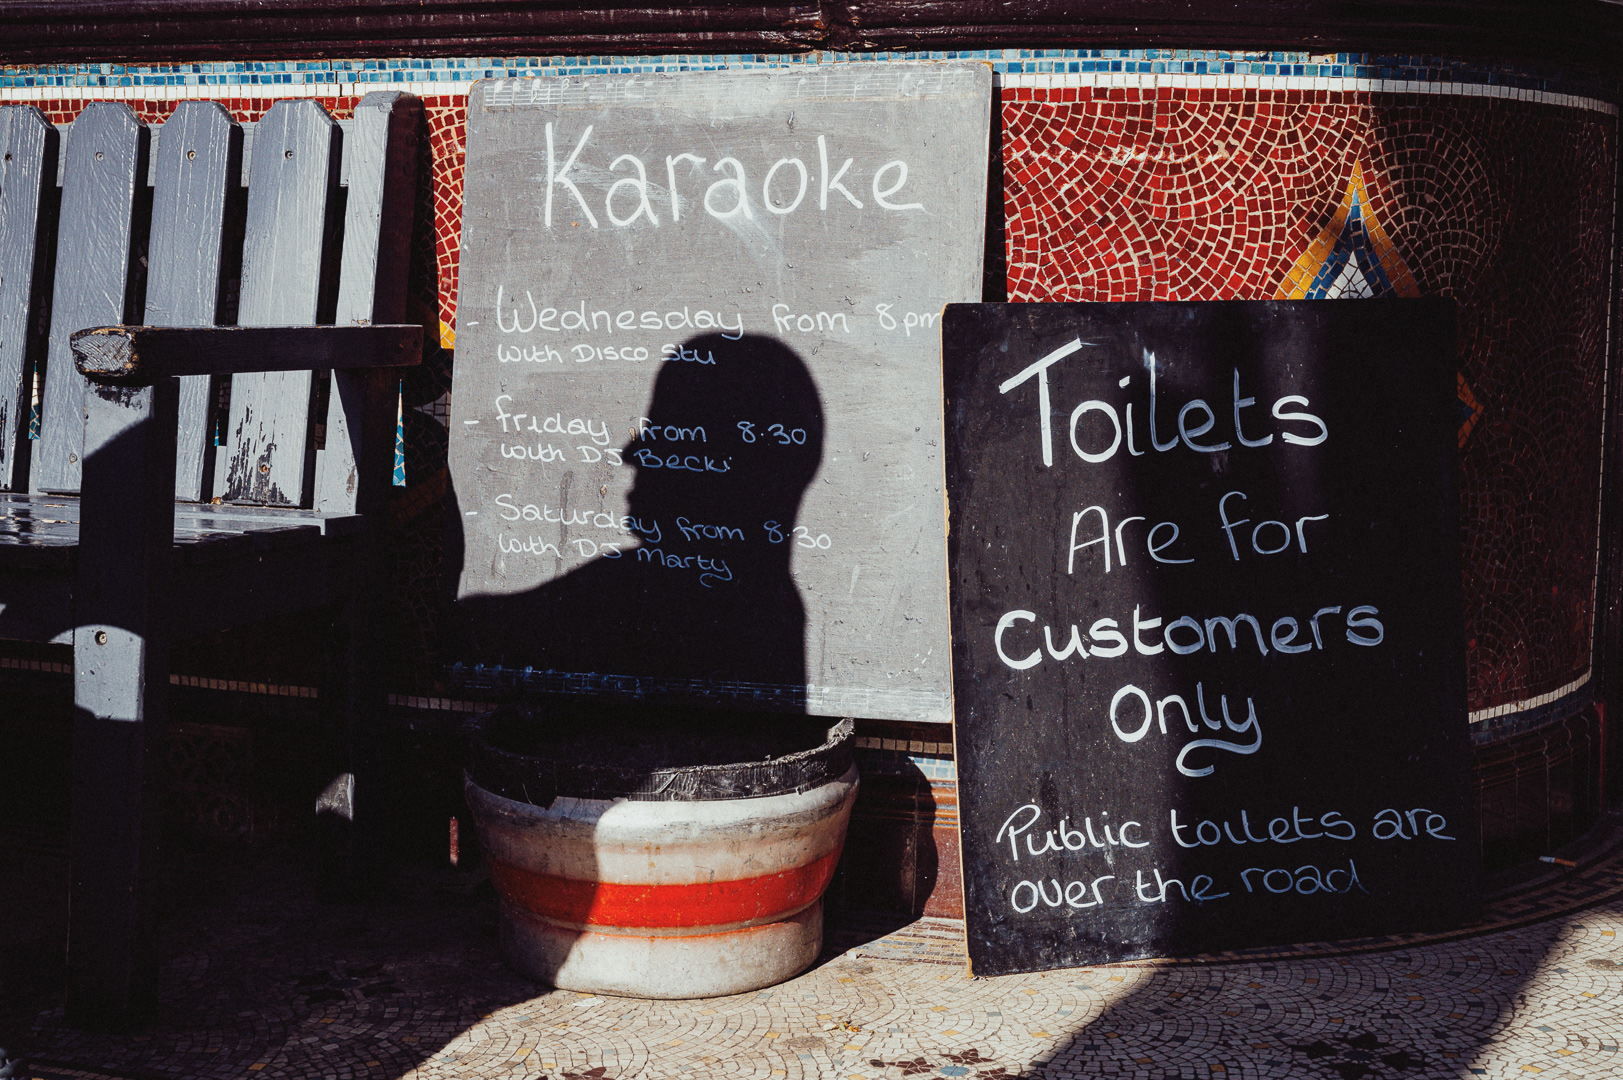 Karaoke
- Wednesday from 8pm
with Disco Stu
- friday from 8.30
with DJ Becki
- Saturday from 8.30
with DJ Marty
Toilets
Are for
Customers
Only
Public toilets are
over the road